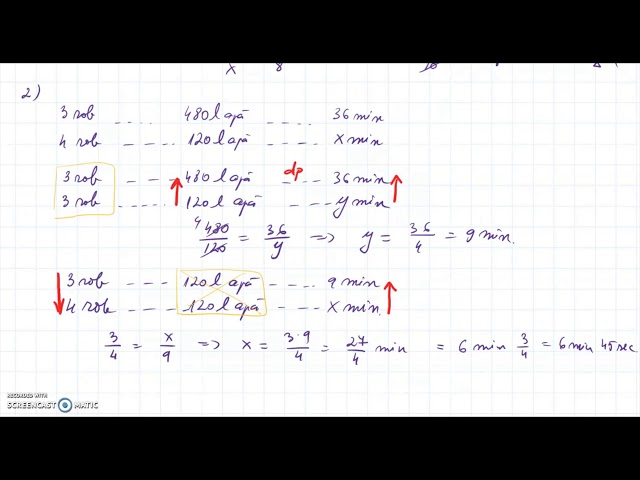 x 8
2)
3 rob .... 480l apă .... 36 min
4 rob ---- 120l apă ---- x min
3 rob .... 480l apă dp ---- 36 min
3 rob ..... 120l apă ---- y min
4 480/120 = 36/y => y = 36/4 = 9 min.
3 rob ---- 120l apă ---- 9 min
4 rob ---- 120l apă ---- x min.
3/4 = x/9 => x = 3·9/4 = 27/4 min = 6 min 3/4 = 6 min 45 sec
RECORDED WITH
SCREENCAST MATIC